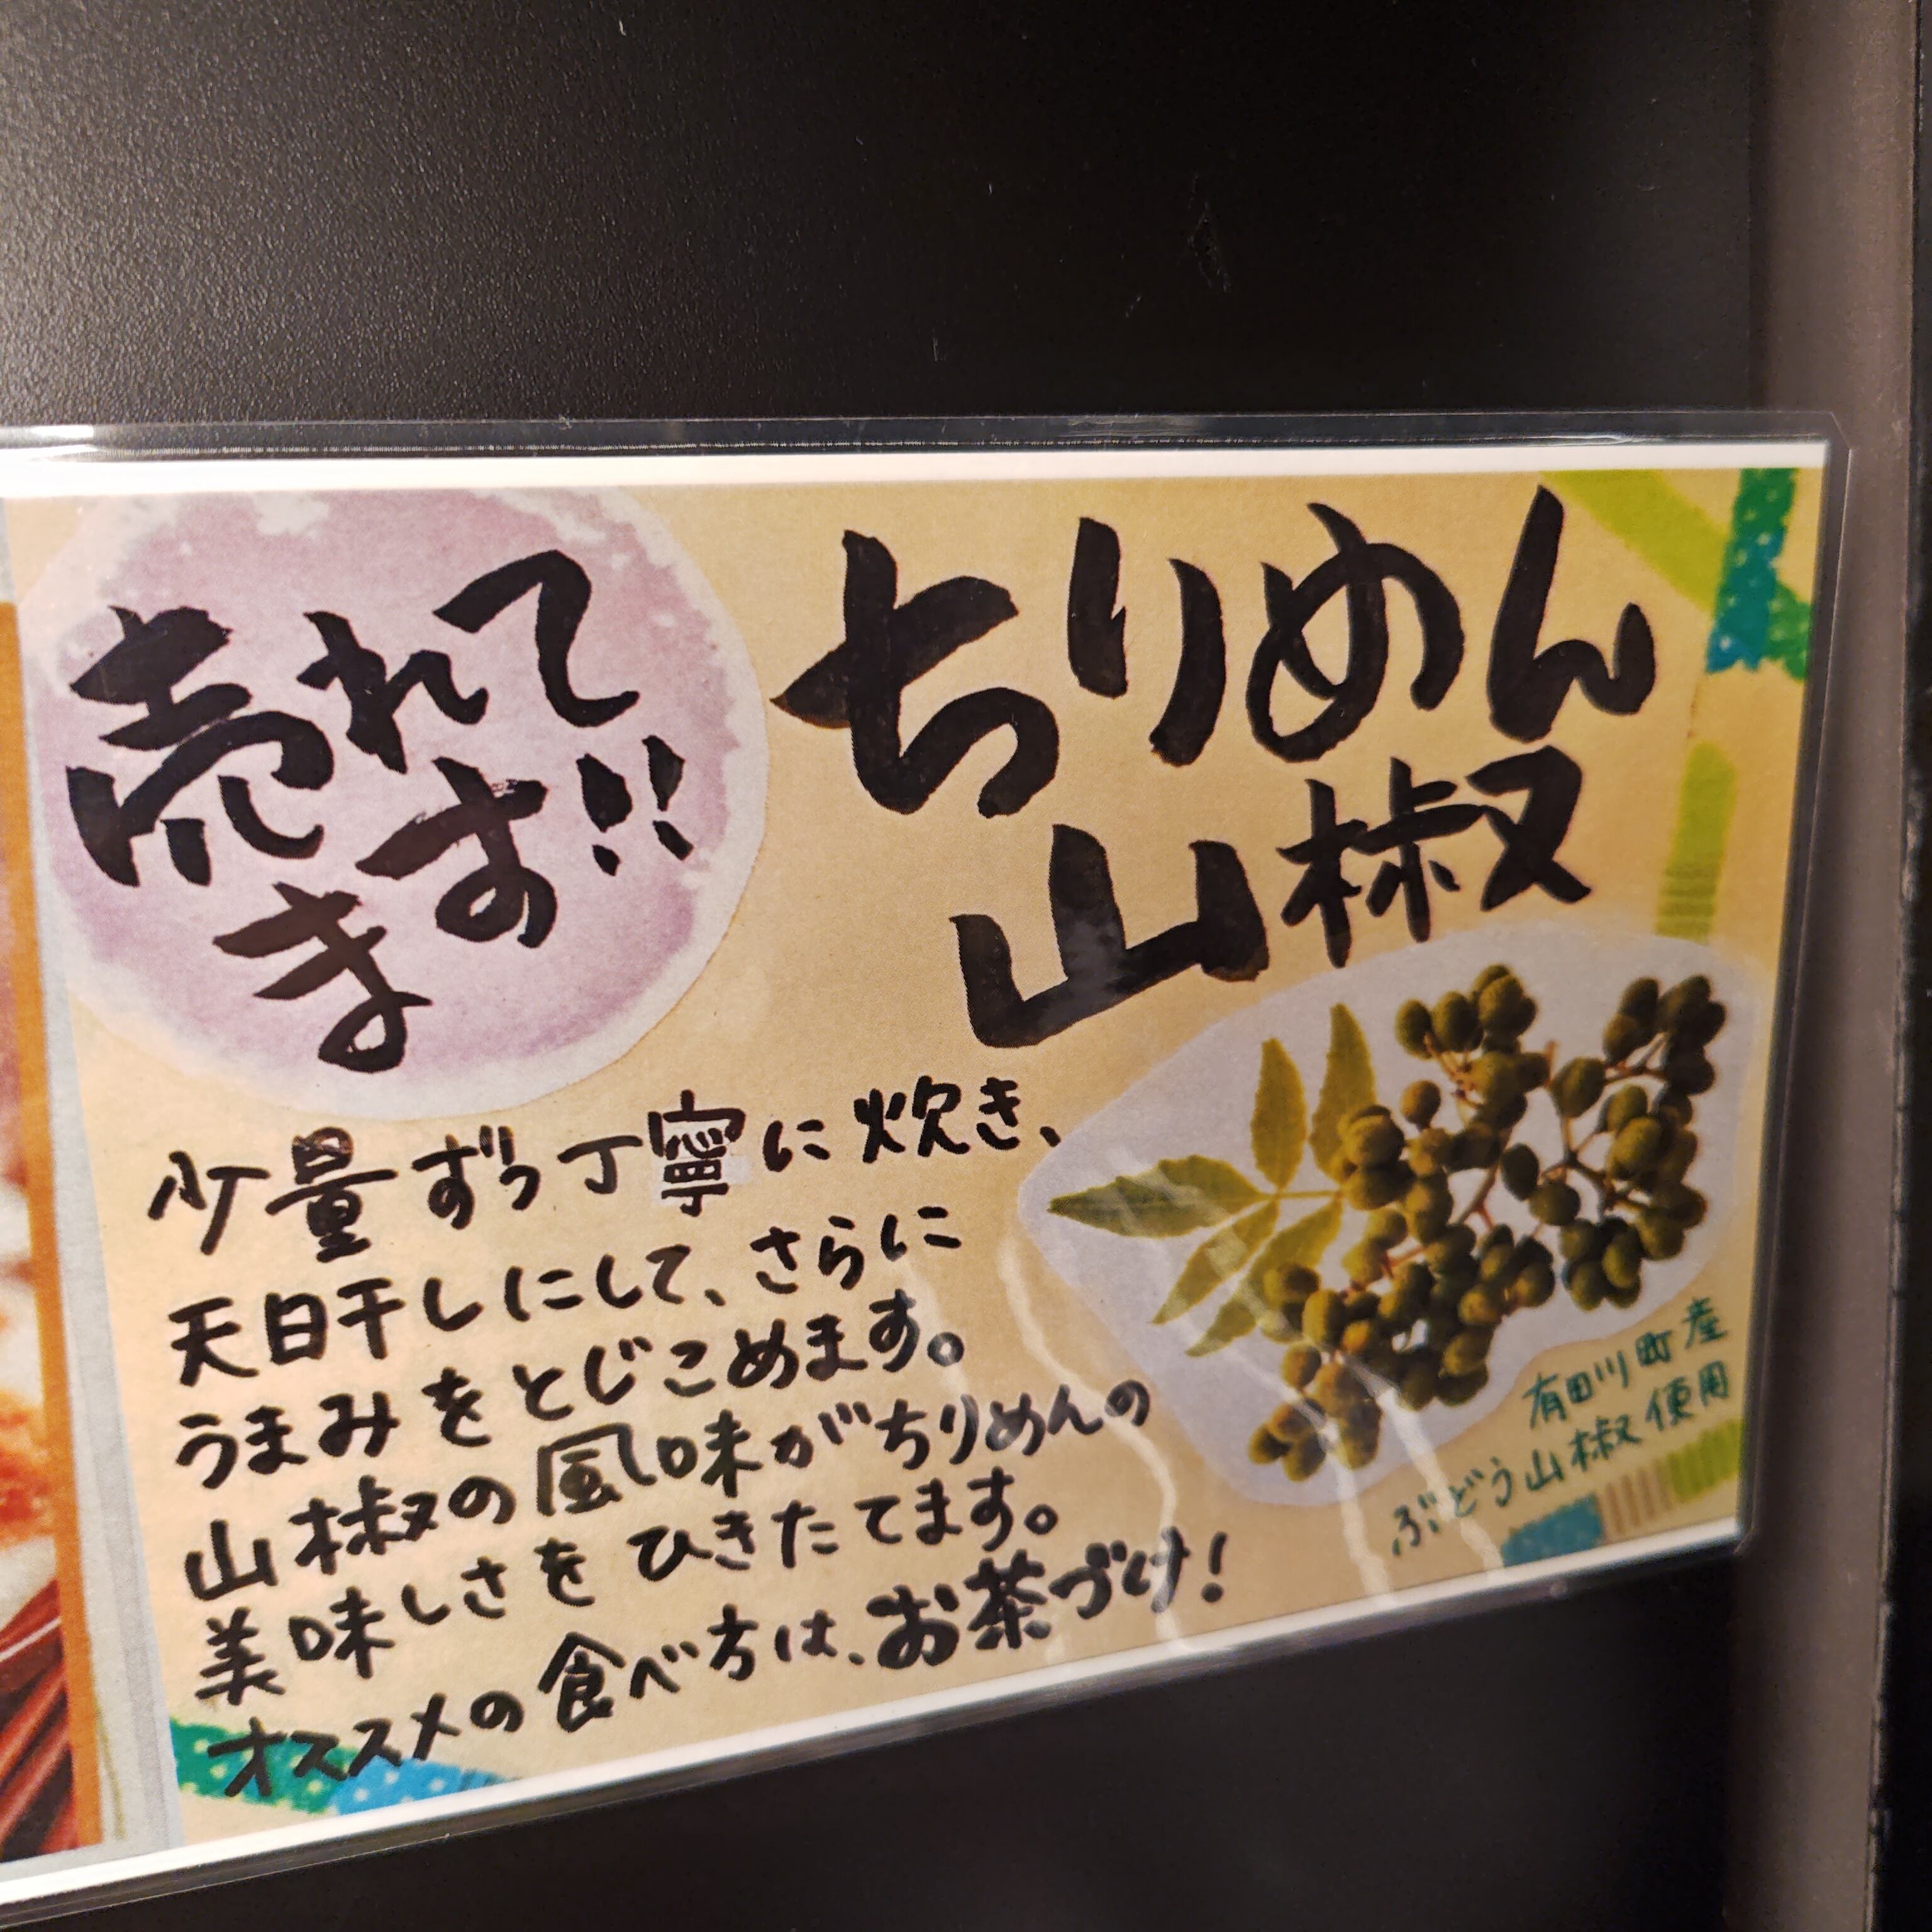 売れて
ます!!
ちりめん
山椒
少量ずつ丁寧に炊き、
天日干しにして、さらに
うまみをとじこめます。
山椒の風味がちりめんの
美味しさをひきたてます。
オススメの食べ方は、お茶づけ!
有田川町産
ぶどう山椒使用